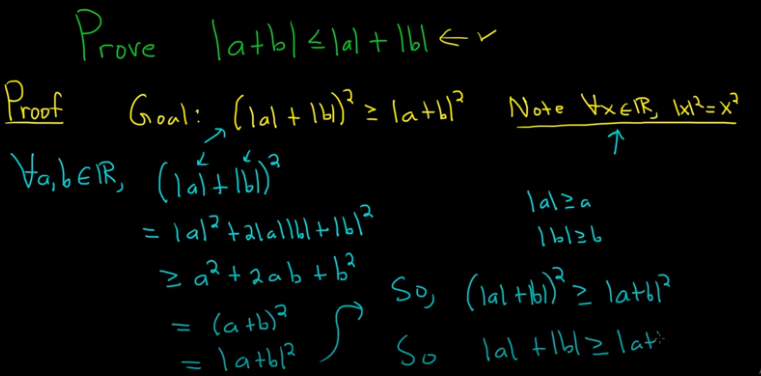 Prove |a+b| ≤ |a| + |b| ← ✓
Proof Goal: (|a| + |b|)² ≥ |a+b|² Note ∀x∈ℝ, |x|² = x²
∀a,b∈ℝ, (|a| + |b|)²
= |a|² + 2|a||b| + |b|²
≥ a² + 2ab + b²
= (a+b)²
= |a+b|²
|a| ≥ a
|b| ≥ b
So, (|a| + |b|)² ≥ |a+b|²
So |a| + |b| ≥ |a+